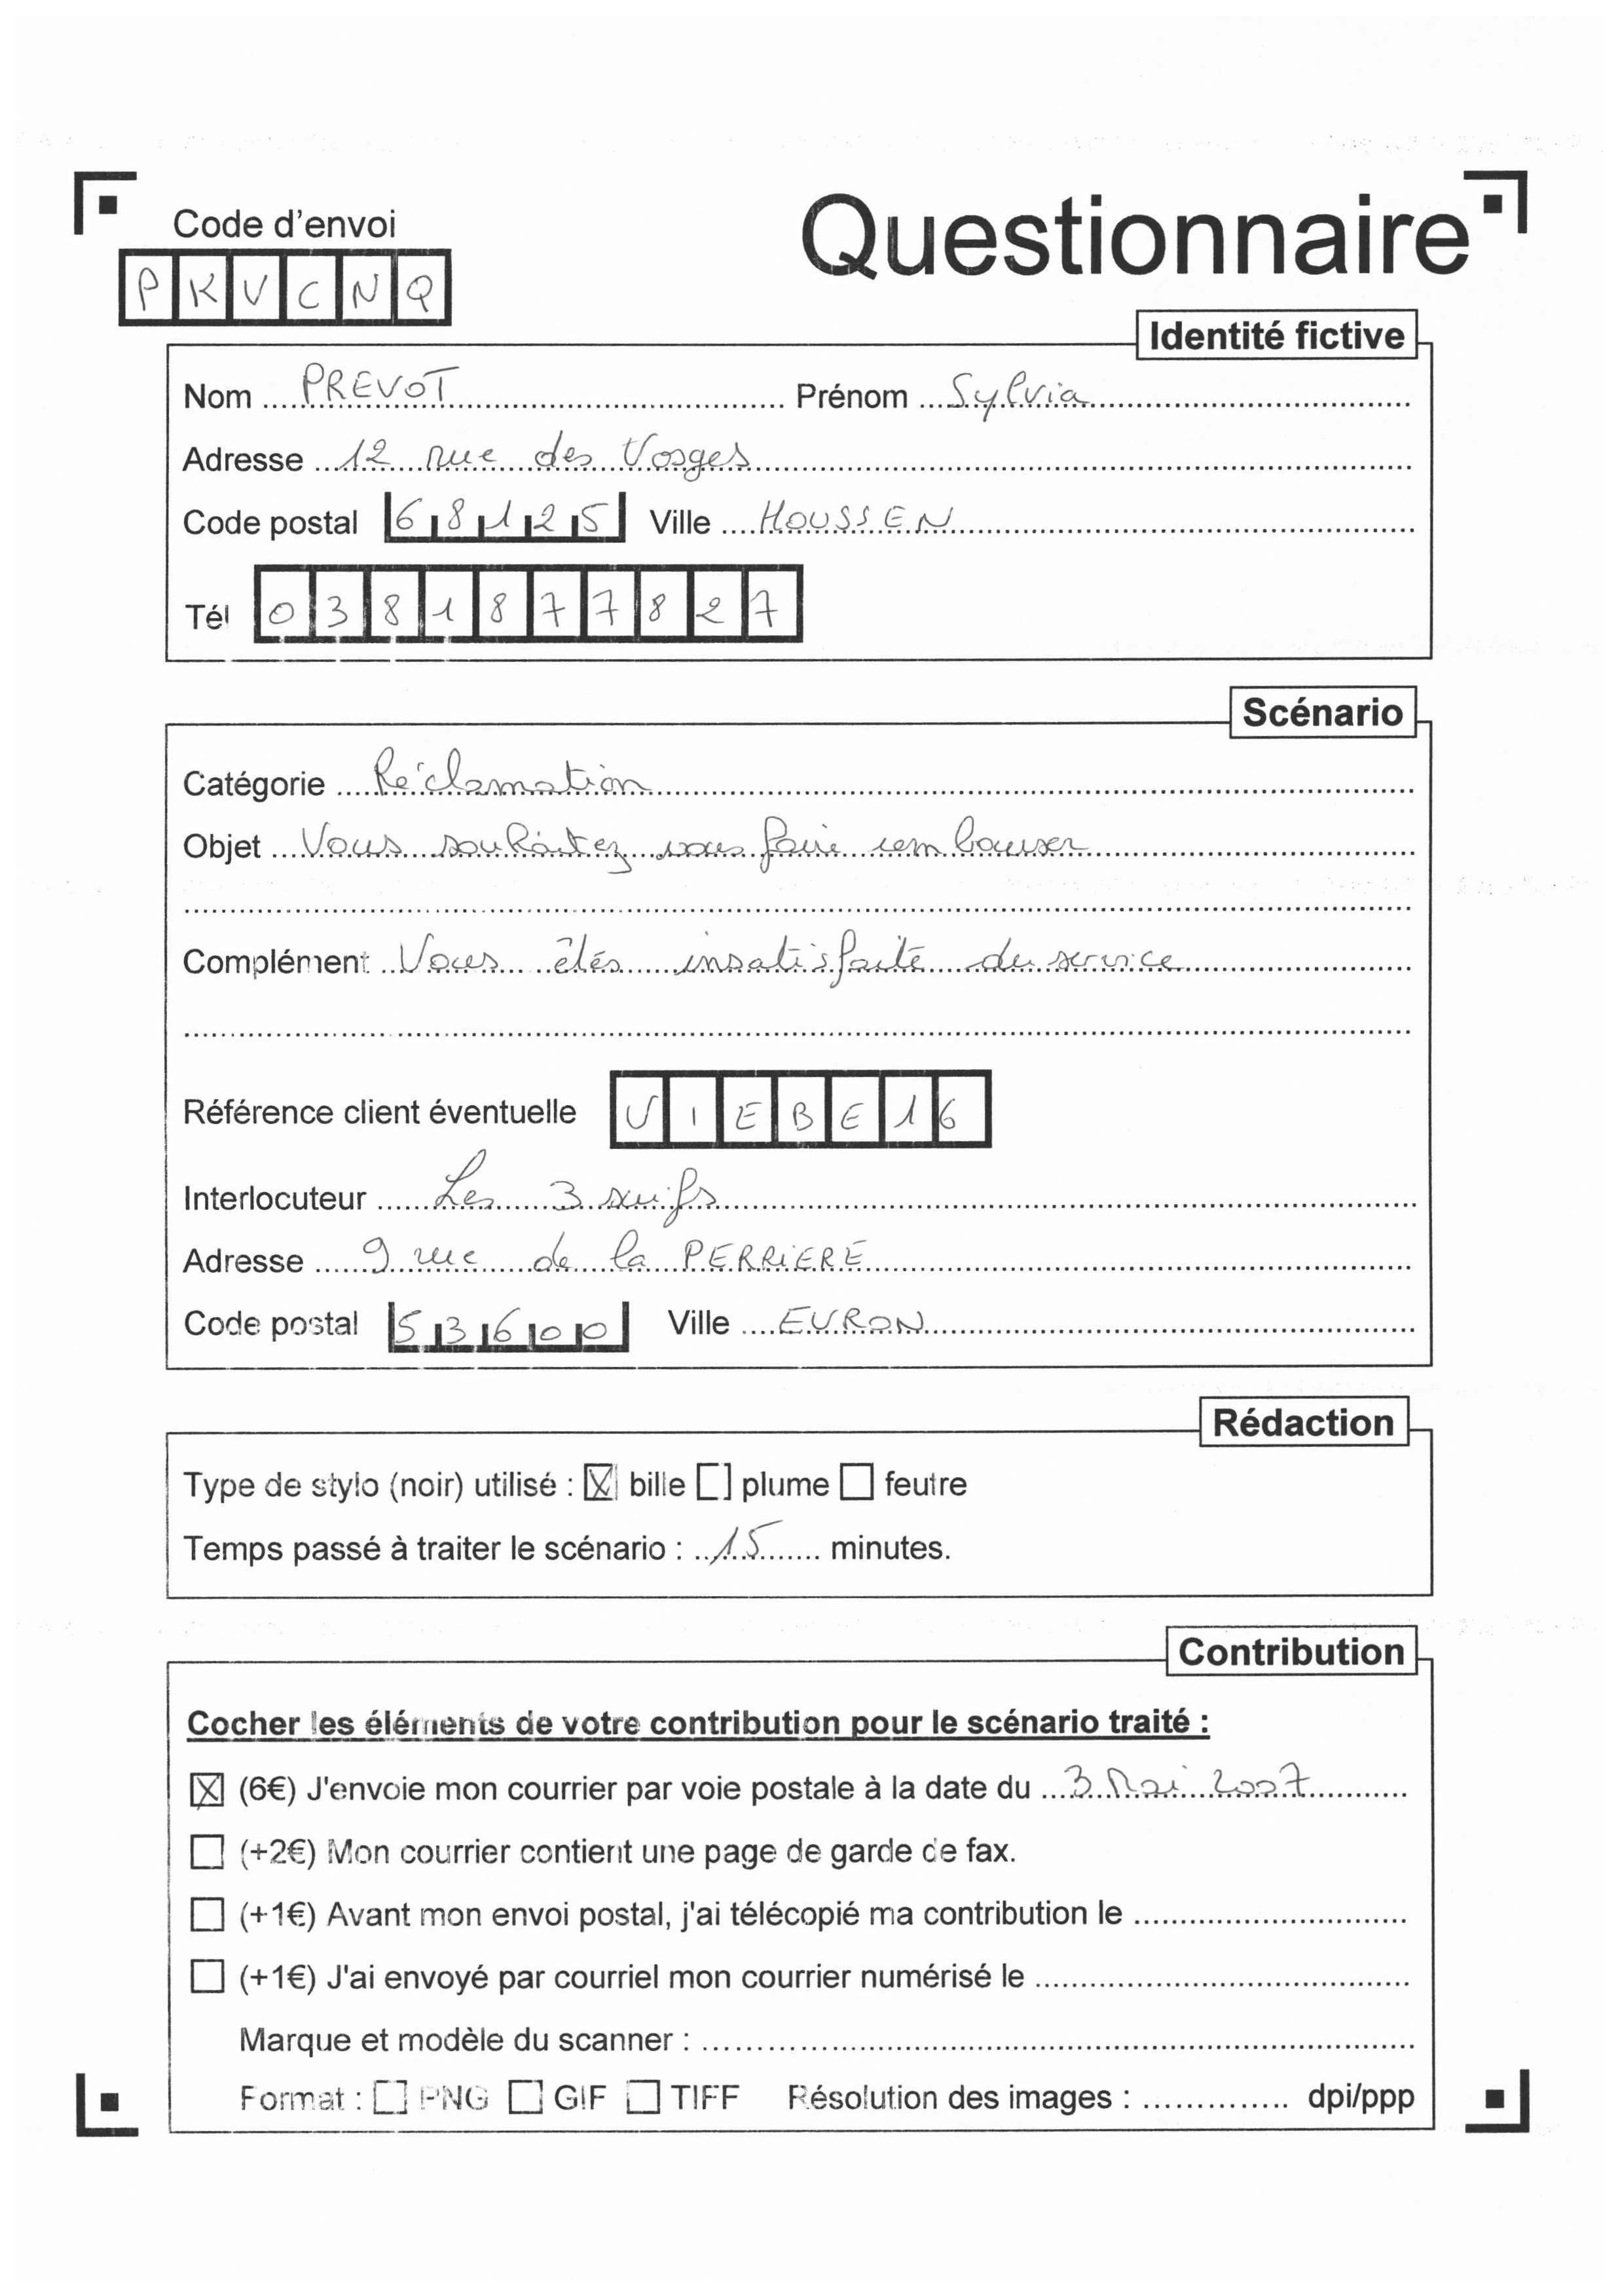 Code d'envoi
PKVCNQ
Questionnaire
Identité fictive
Nom PREVOT Prénom Sylvia
Adresse 12 rue des Vosges
Code postal 68125 Ville HOUSSEN
Tél 0381877827
Scénario
Catégorie Réclamation
Objet Vous souhaitez vous faire rembourser
Complément Vous êtes insatisfaite du service
Référence client éventuelle VIEBE16
Interlocuteur Les 3 suifs
Adresse 9 rue de la PERRIERE
Code postal 53600 Ville EVRON
Rédaction
Type de stylo (noir) utilisé : ☒ bille ☐ plume ☐ feutre
Temps passé à traiter le scénario : 15 minutes.
Contribution
Cocher les éléments de votre contribution pour le scénario traité :
☒ (6€) J'envoie mon courrier par voie postale à la date du 3 Mai 2007
☐ (+2€) Mon courrier contient une page de garde de fax.
☐ (+1€) Avant mon envoi postal, j'ai télécopié ma contribution le
☐ (+1€) J'ai envoyé par courriel mon courrier numérisé le
Marque et modèle du scanner :
Format : ☐ PNG ☐ GIF ☐ TIFF Résolution des images : dpi/ppp